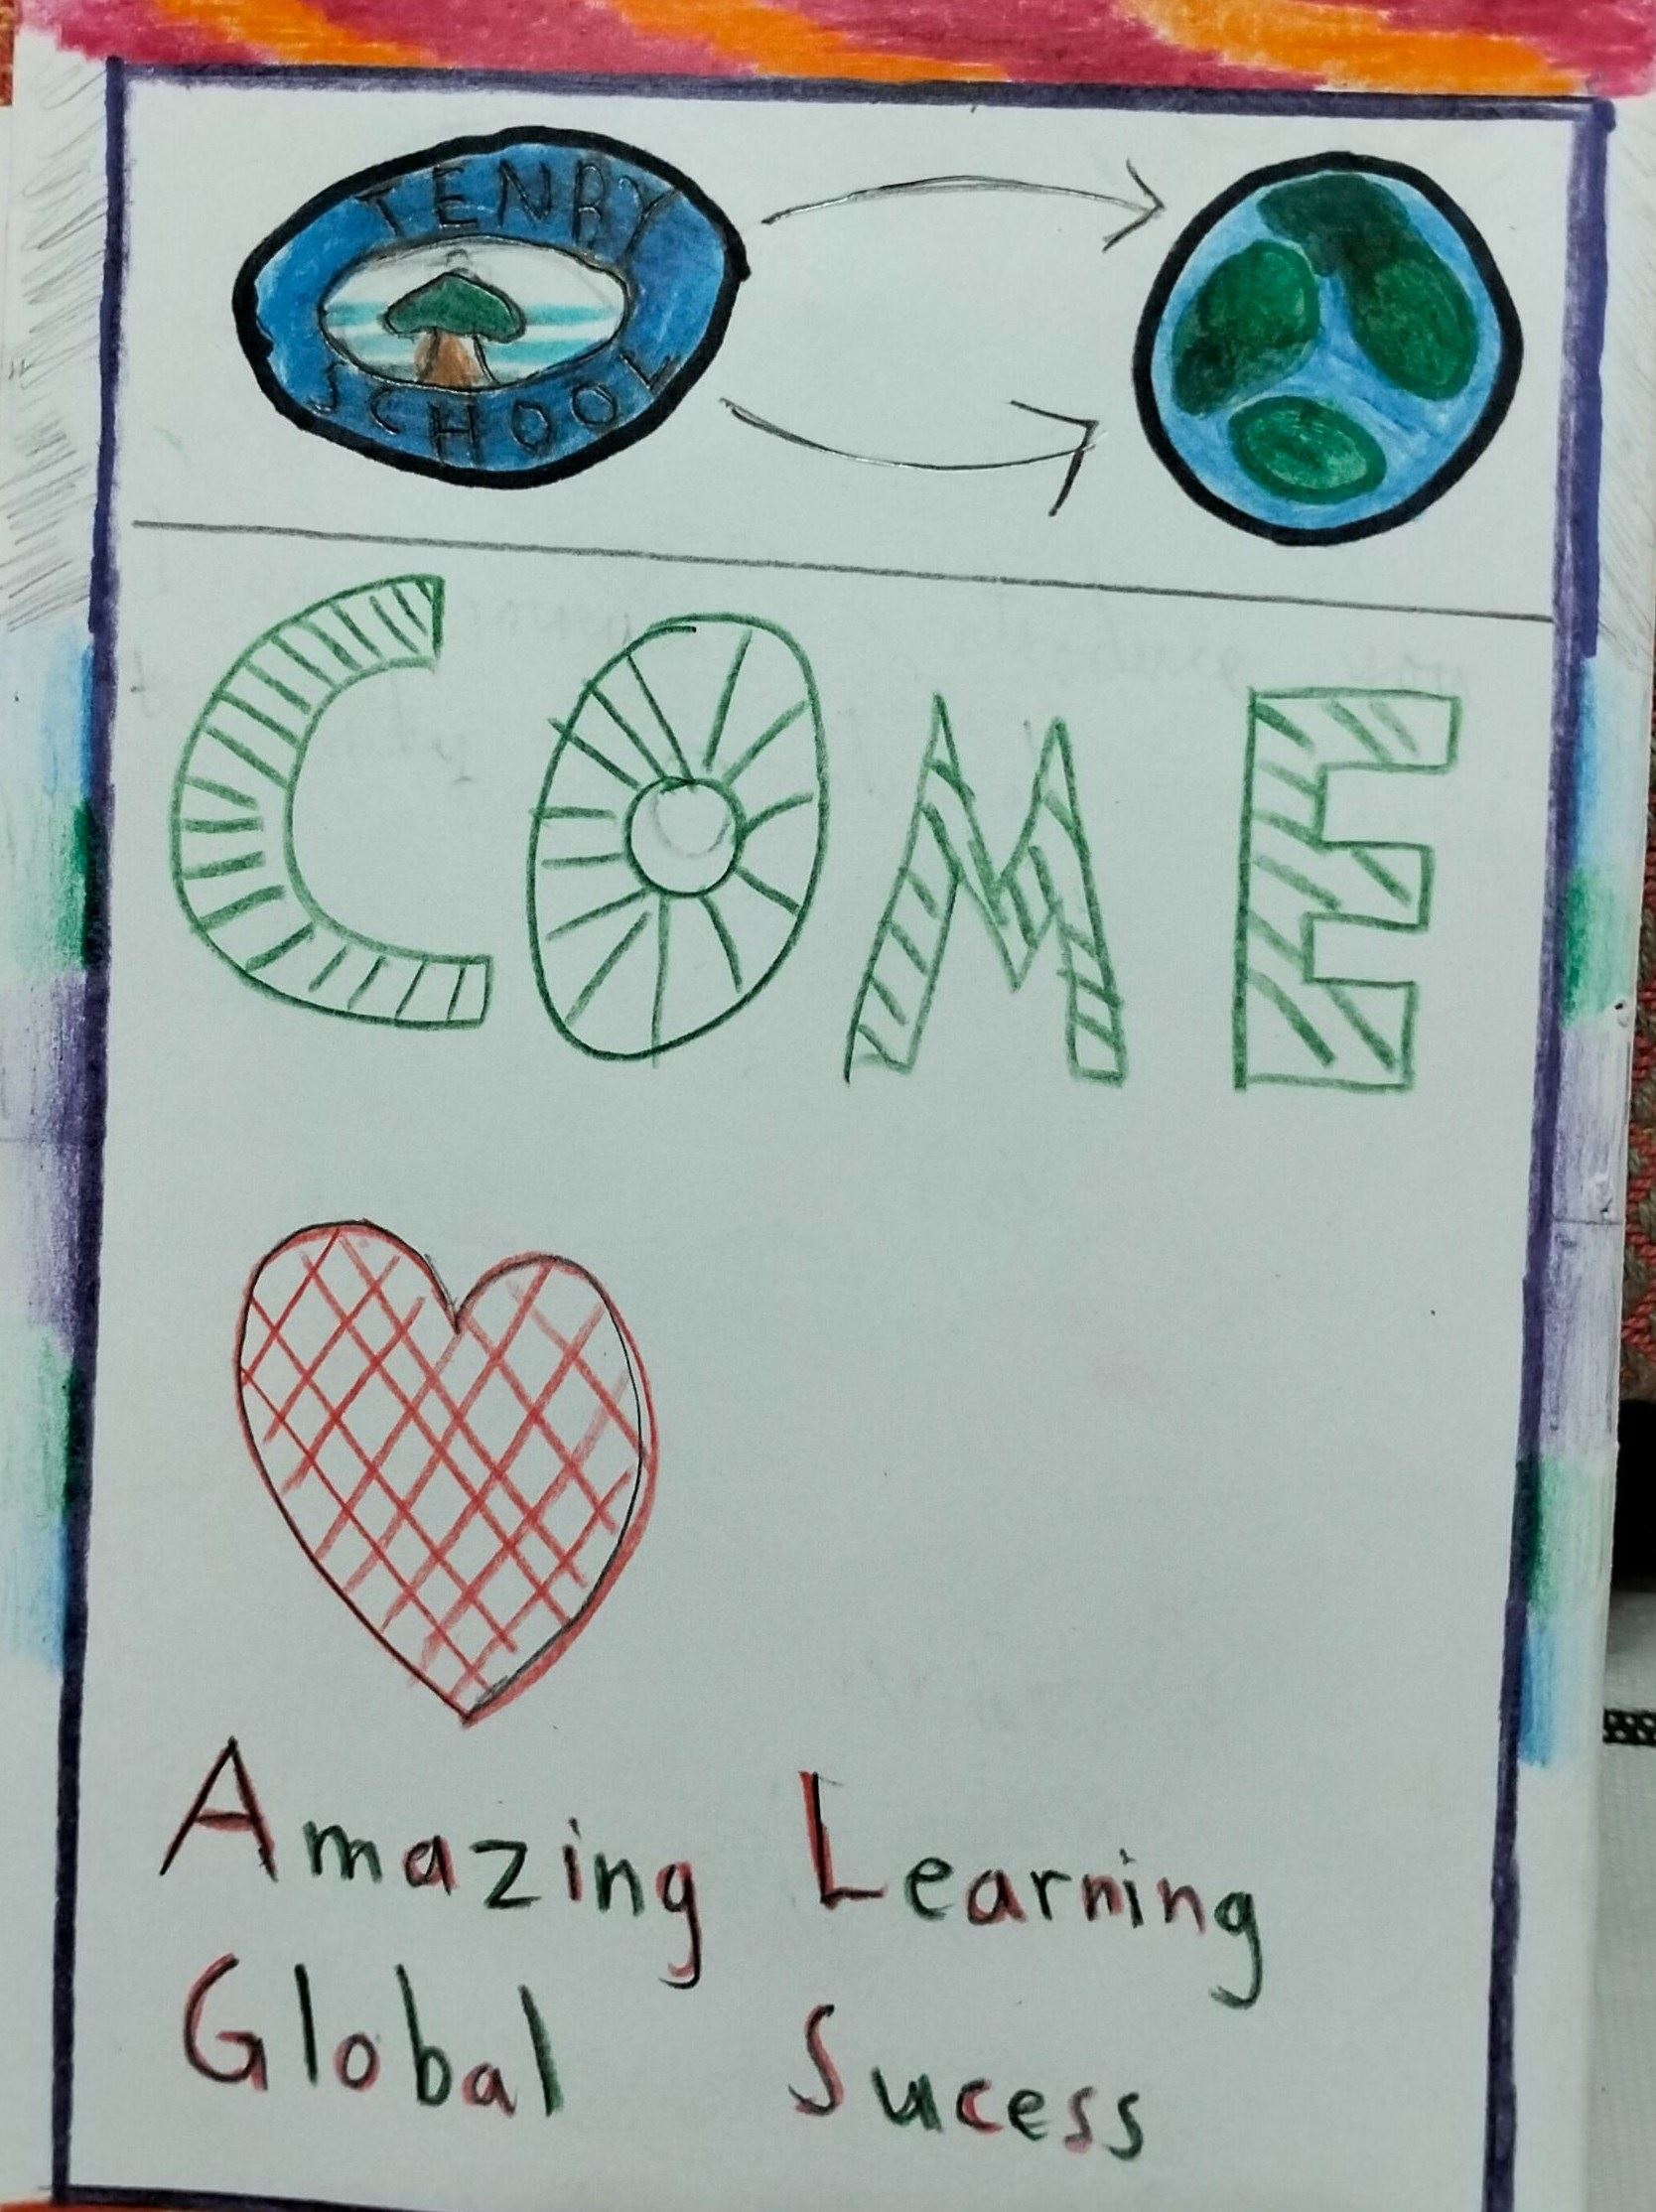 TENBY
SCHOOL
COME
Amazing Learning
Global Sucess